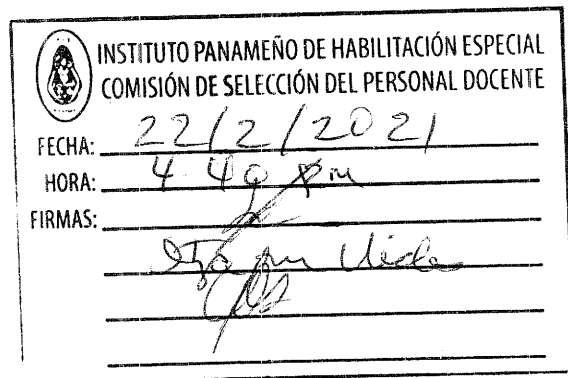 INSTITUTO PANAMEÑO DE HABILITACIÓN ESPECIAL
COMISIÓN DE SELECCIÓN DEL PERSONAL DOCENTE
FECHA: 22/2/2021
HORA: 4:40 pm
FIRMAS: